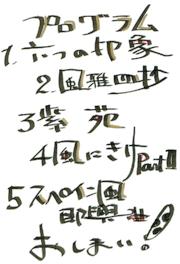 プログラム
1.六つの印象
2.風雅四抄
3紫苑
4風にきけPartII
5スペイン風
即興曲
おしまい!